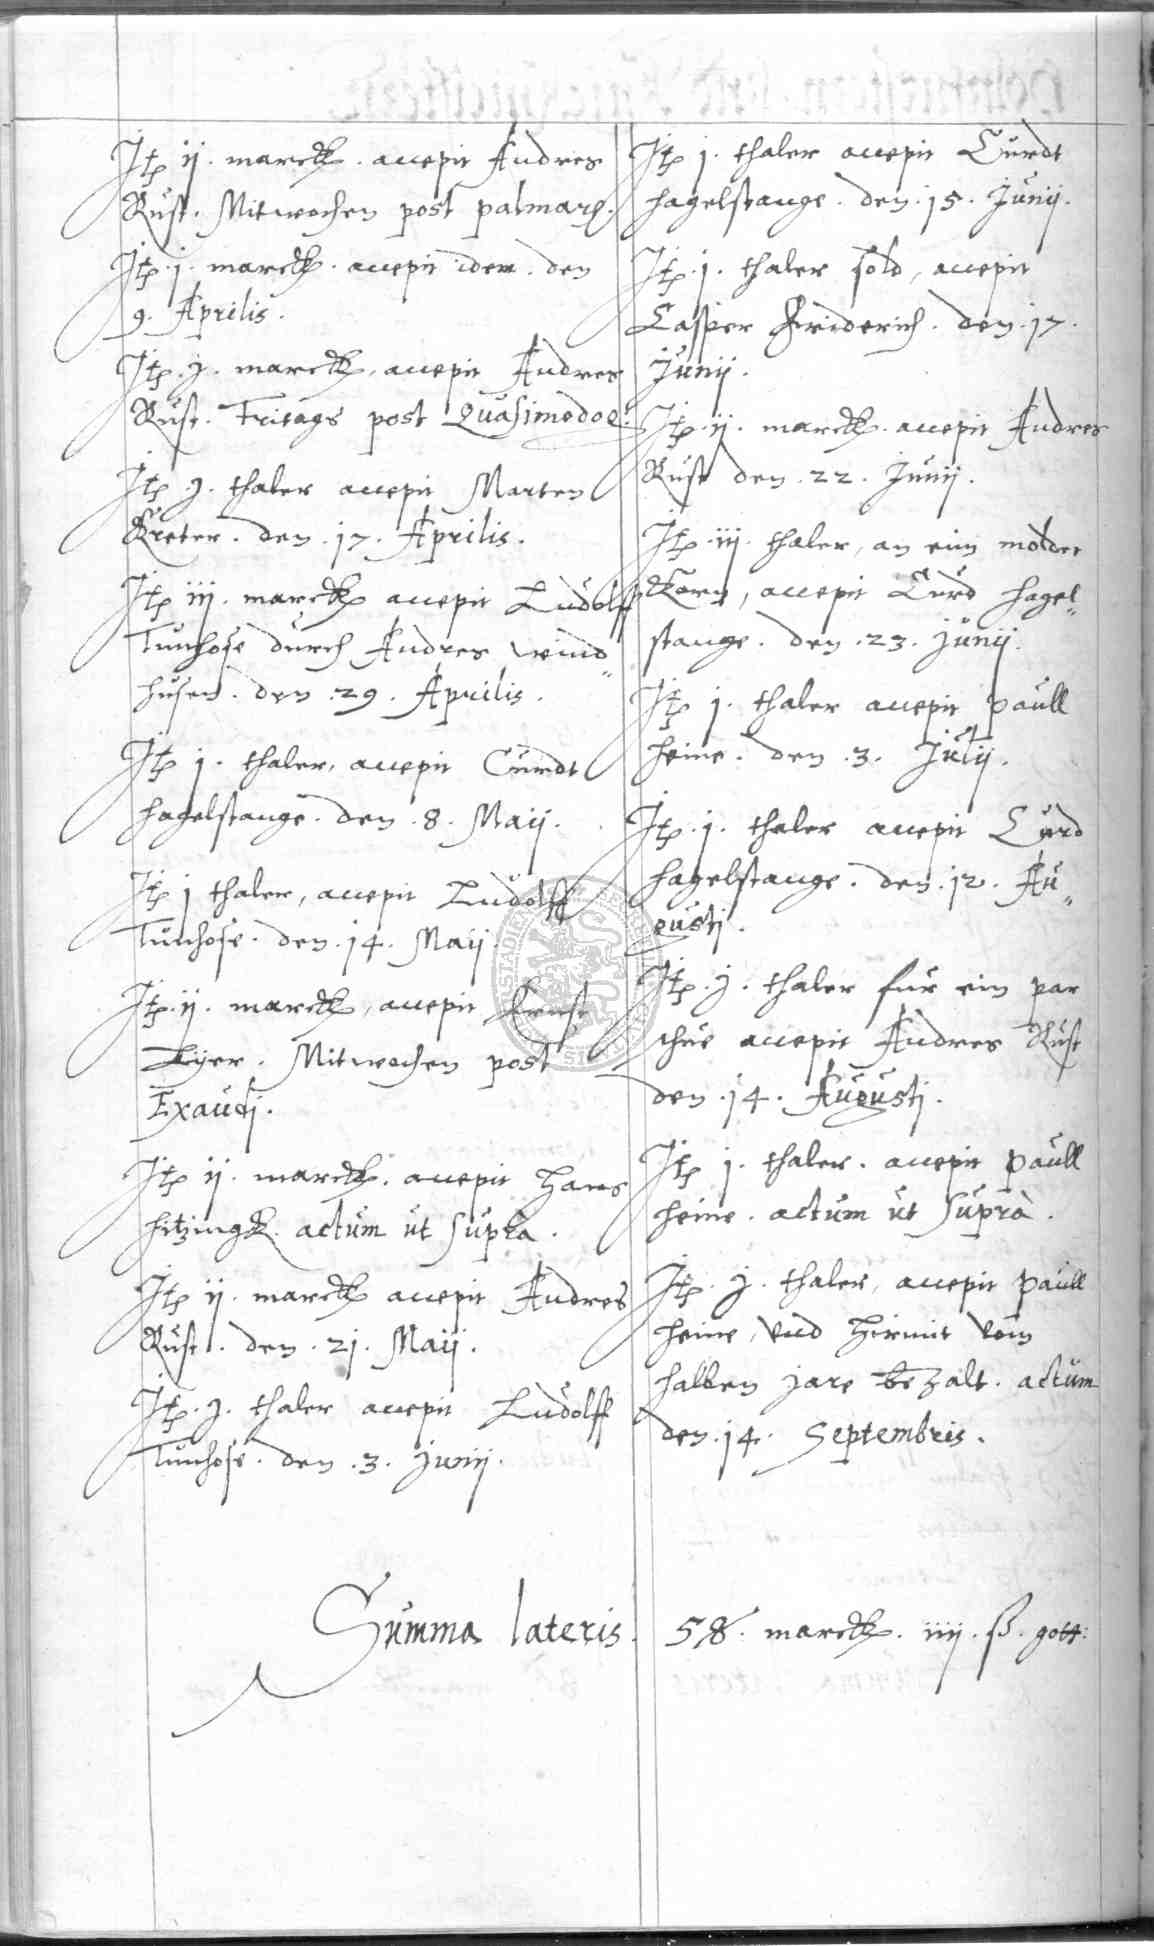 Itp ij. marck. accepit Andres
Rust. Mitwochen post palmarũ.
Itp. j. marck. accepit idem. den
9. Aprilis.
Itp. j. marck, accepit Andres
Rust. Freitags post Quasimodog:
Itp j. thaler accepit Marten
Kreter. den. 17. Aprilis.
Itp iij. marck accepit Ludolff
Tunhose durch Andres wind„
husen. den. 29. Aprilis.
Itp j. thaler, accepit Curdt
Hagelstange. den. 8. Maij.
Itp j thaler, accepit Ludolff
Tunhose. den. 14. Maij.
Itp. ij. marck, accepit Ernst
Mitwochen post
Exaudi.
Itp ij. marck. accepit Hans
hitzingk. actum ut supra.
Itp ij. marck accepit Andres
Rust. den. 21. Maij.
Itp. j. thaler accepit Ludolff
Tunhose. den. 3. Junij.
Itp j. thaler accepit Curdt
hagelstange. den. 15. Junij.
Itp. j. thaler sold, accepit
Casper Friderich. den. 17.
Junij.
Itp. ij. marck. accepit Andres
Rust den. 22. Junij.
Itp. iij. thaler, an ein molder
Korn, accepit Curd Hagel„
stange. den. 23. Junij.
Itp j. thaler accepit paull
heine. den. 3. Julij.
Itp. j. thaler accepit Curd
hagelstange. den. 12. Au„
gusti.
Itp. j. thaler fur ein par
schue accepit Andres Rust
den. 14. Augusti.
Itp j. thaler. accepit paull
heine. actum ut supra.
Itp. j. thaler, accepit paull
heine, und hirmit vom
halben jare bezalt. actum
den. 14. Septembris.
Summa lateris. 58. marck. iiij. ß. gott: